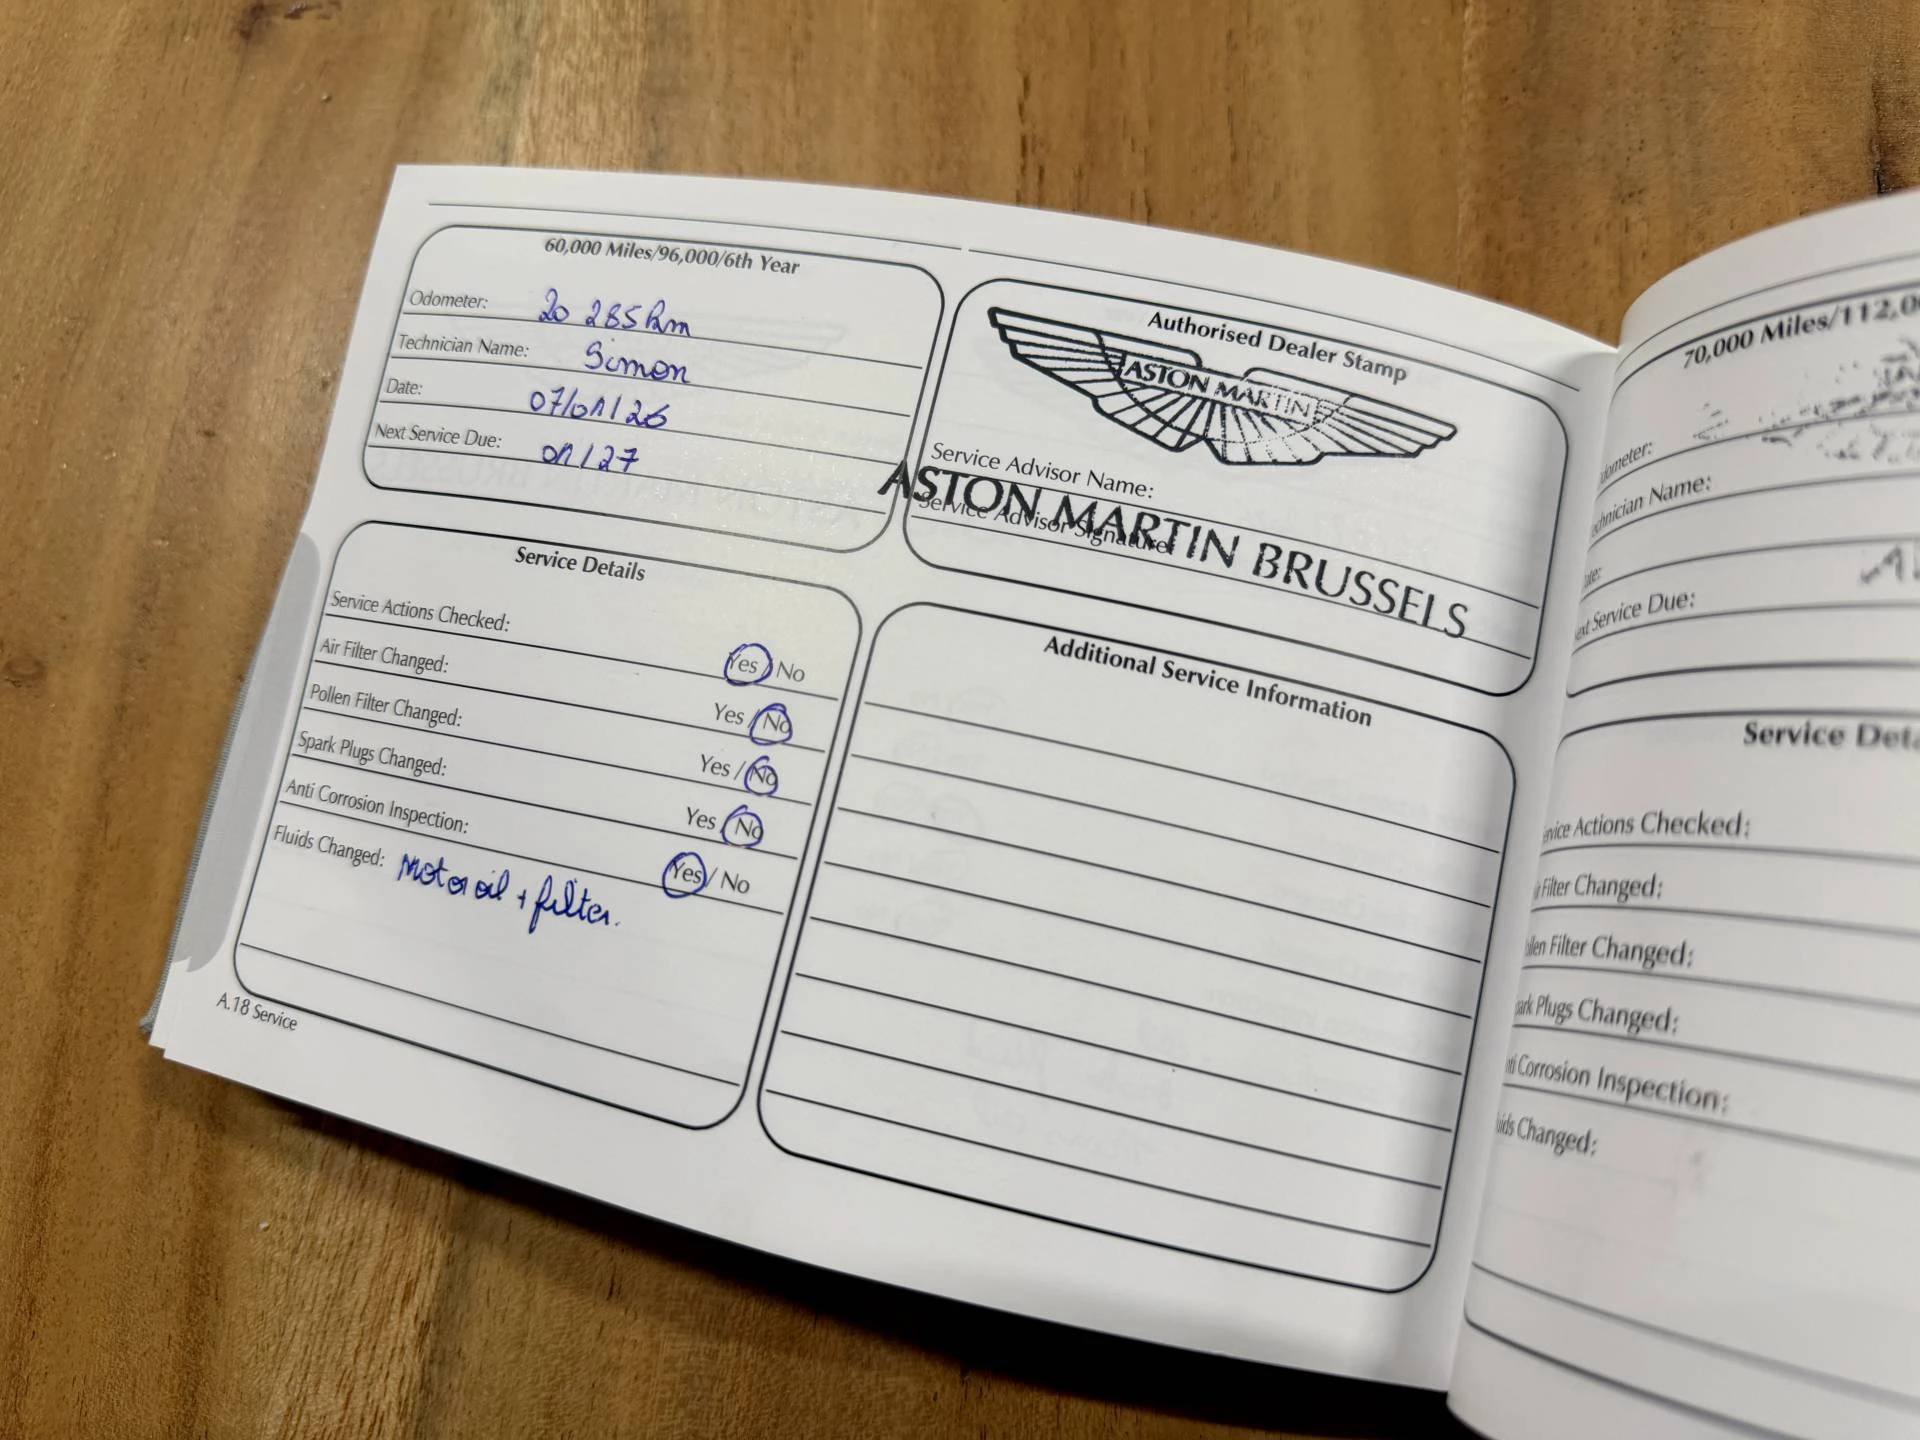 60,000 Miles/96,000/6th Year
Odometer: 20 285 km
Technician Name: Simon
Date: 07/01/26
Next Service Due: 01/27
Authorised Dealer Stamp
ASTON MARTIN
Service Advisor Name:
ASTON MARTIN BRUSSELS
Service Advisor Signature:
Service Details
Service Actions Checked:
Yes / No
Air Filter Changed:
Yes / No
Pollen Filter Changed:
Yes / No
Spark Plugs Changed:
Yes / No
Anti Corrosion Inspection:
Yes / No
Fluids Changed: Motor oil + filter.
Additional Service Information
A.18 Service
70,000 Miles/112,0
Name:
Service Due:
Service
Actions Checked:
Filter Changed:
Filter Changed:
Plugs Changed:
Corrosion Inspection:
Changed: